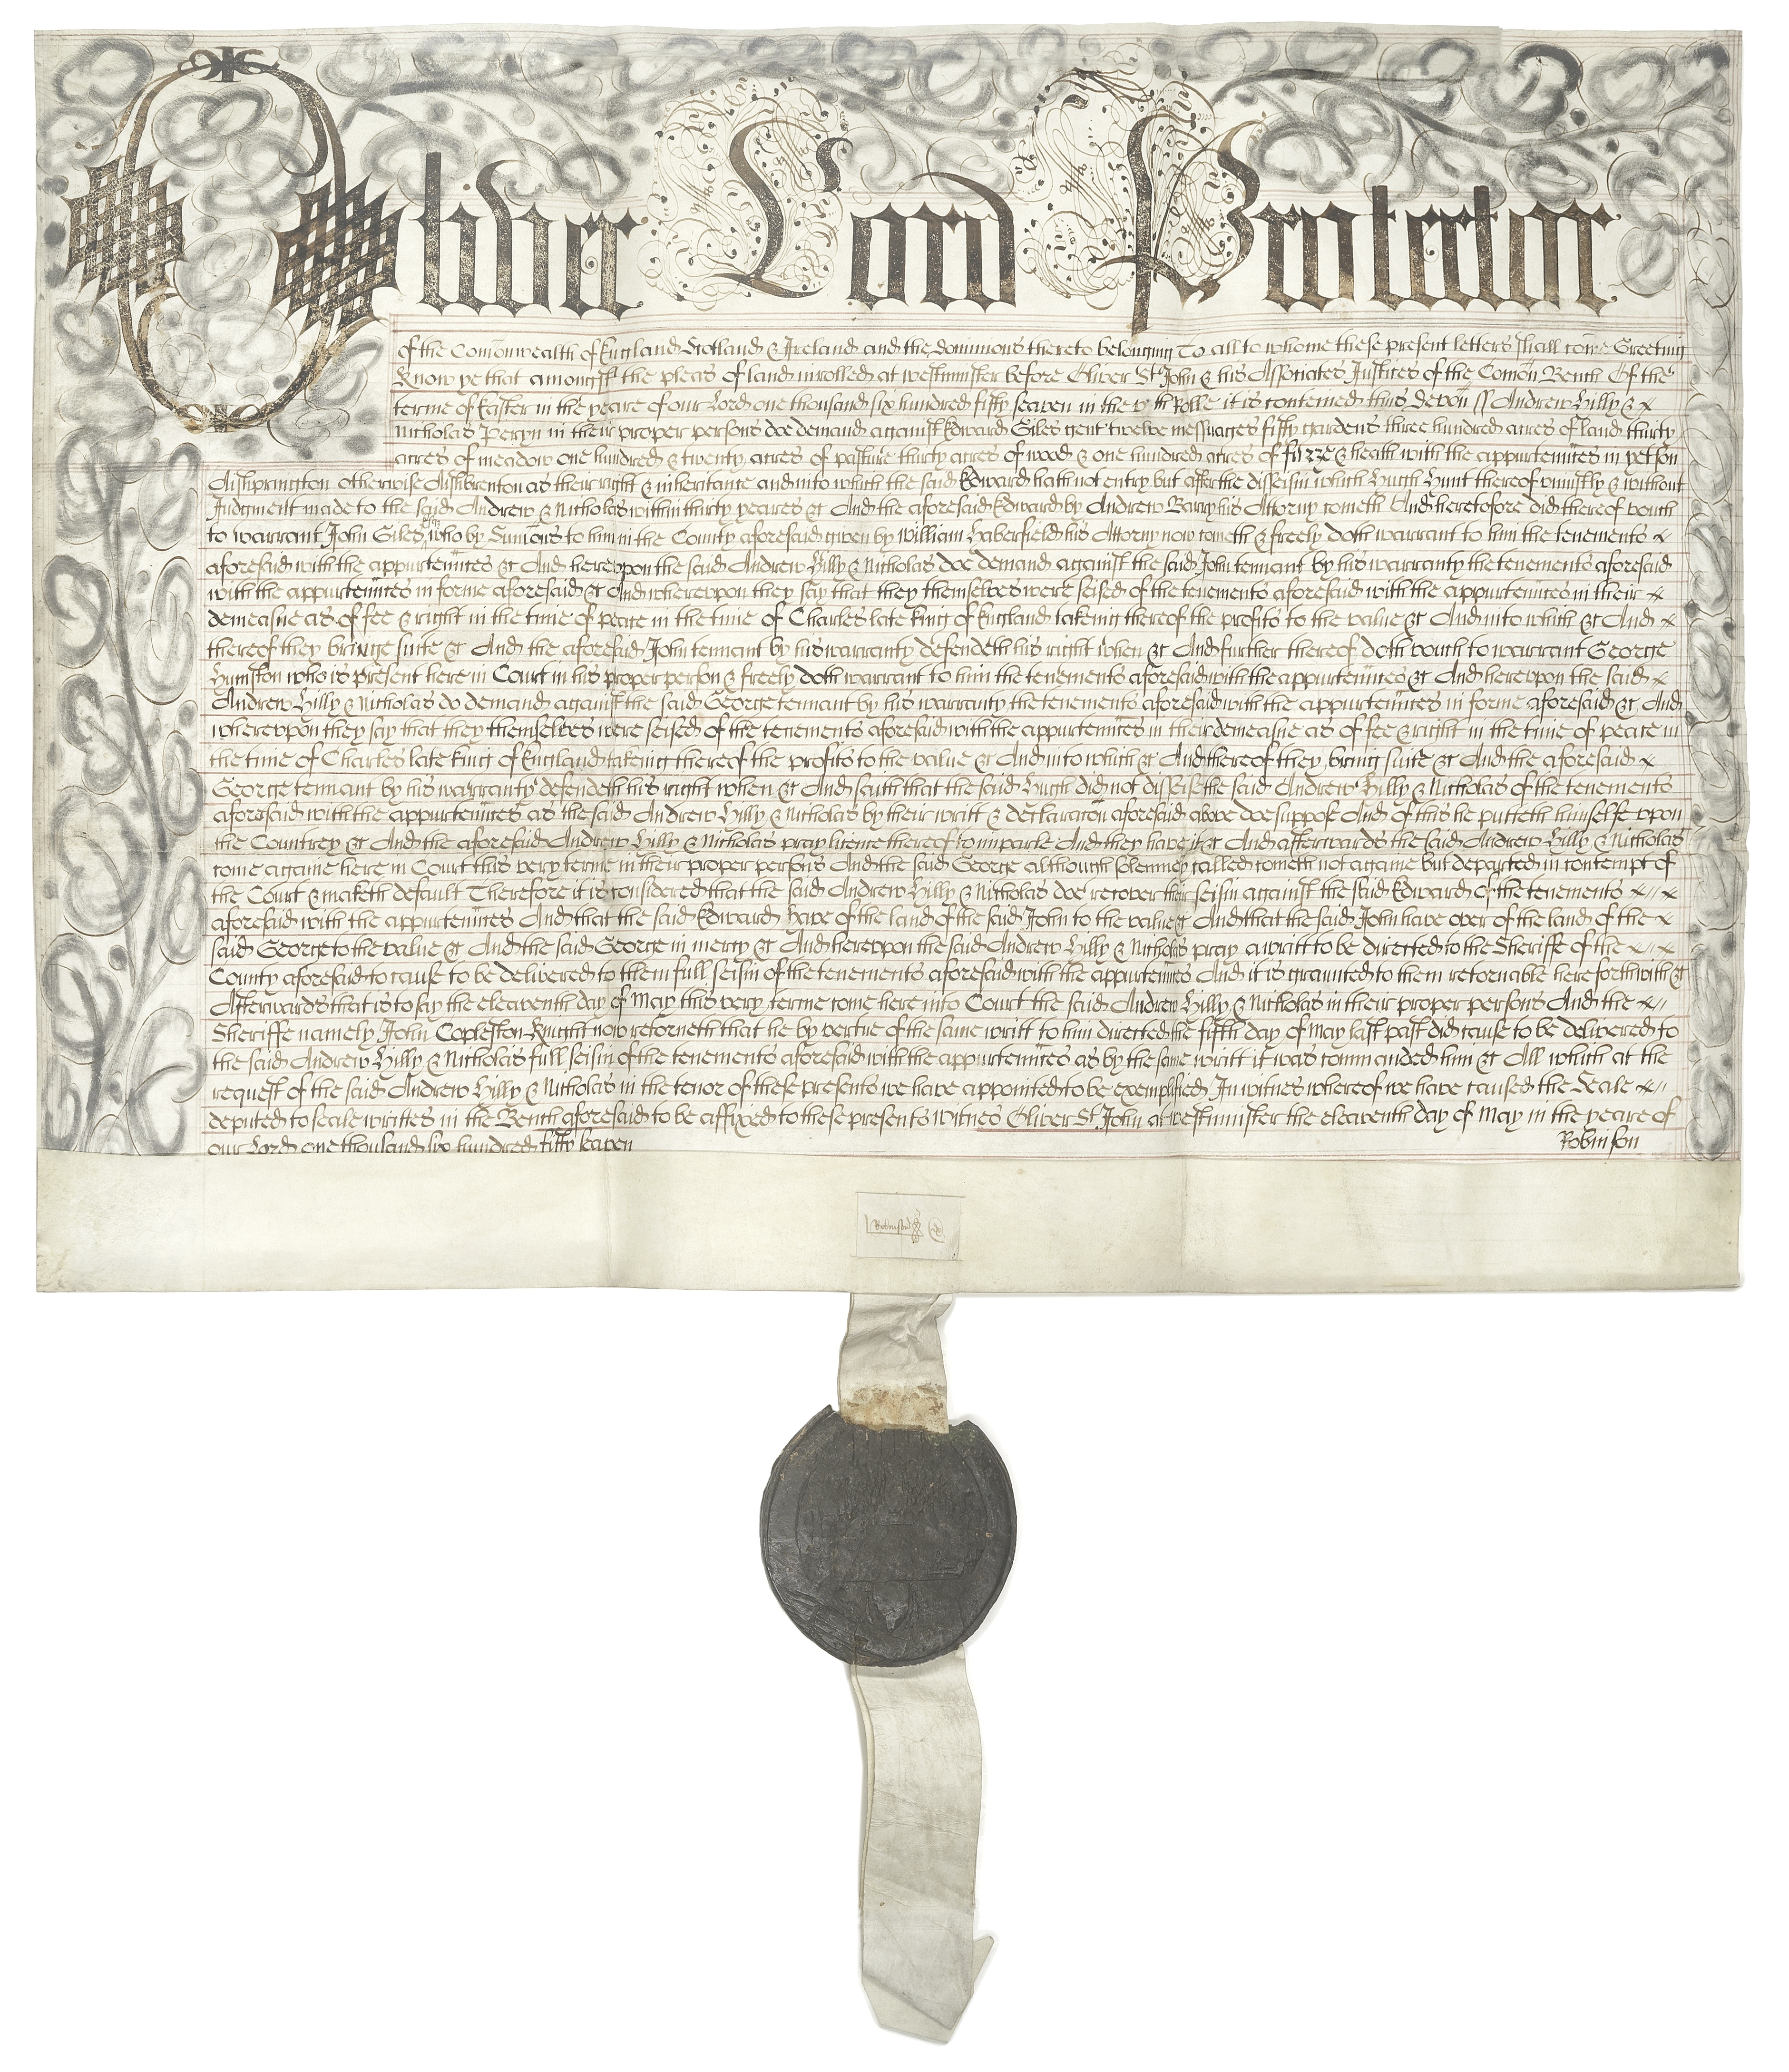 Oliver Lord Protector
of the Com̄onwealth of England Scotland & Ireland and the dominions thereto belonging To all to whome these present letters shall come Greeting
Know ye that amongst the pleas of land inrolled at westminster before Oliver St John & his Associates Justices of the Com̄on Bench Of the
terme of Easter in the yeare of our Lord one thousand six hundred fifty seaven in the Rolle it is conteined thus Devon ss Andrew Hilly &
Nicholas Peryn in their proper persons doe demand against Edward Giles gent twelve messuages fifty gardens three hundred acres of land thirty
acres of meadow one hundred & twenty acres of pasture thirty acres of wood & one hundred acres of furze & heath with the appurtenn̄ces in
Aishprington otherwise Aishbrenton as their right & inheritance and into which the said Edward hath not entry but after the disseisin which Hugh Hunt thereof uniustly & without
Judgment made to the said Andrew & Nicholas within thirty yeares &c And the aforesaid Edward by Andrew Barry his Attorny cometh And heretofore did thereof vouch
to warrant John Giles who by Sum̄ons to him in the County aforesaid given by William Haberfield his Attorny now cometh & freely doth warrant to him the tenements
aforesaid with the appurtenn̄ces &c And herevpon the said Andrew Hilly & Nicholas doe demand against the said John tennant by his warranty the tenements aforesaid
with the appurtenn̄ces in forme aforesaid &c And wherevpon they say that they themselves were seised of the tenements aforesaid with the appurtenn̄ces in their
demeasne as of fee & right in the time of peace in the time of Charles late king of England taking thereof the profits to the value &c And into which &c And
thereof they bringe suite &c And the aforesaid John tennant by his warranty defendeth his right when &c And further thereof doth vouch to warrant George
Humston who is present here in Court in his proper person & freely doth warrant to him the tenements aforesaid with the appurtenn̄ces &c And herevpon the said
Andrew Hilly & Nicholas do demand against the said George tennant by his warranty the tenements aforesaid with the appurtenn̄ces in forme aforesaid &c And
wherevpon they say that they themselves were seised of the tenements aforesaid with the appurtenn̄ces in their demeasne as of fee & right in the time of peace in
the time of Charles late king of England taking thereof the profits to the value &c And into which &c And thereof they bring suite &c And the aforesaid
George tennant by his warranty defendeth his right when &c And saith that the said Hugh did not disseise the said Andrew Hilly & Nicholas of the tenements
aforesaid with the appurtenn̄ces as the said Andrew Hilly & Nicholas by their writt & declarac̄on aforesaid above doe suppose And of this he putteth himselfe vpon
the Countrey &c And the aforesaid Andrew Hilly & Nicholas pray licence thereof to imparle And they have it &c And afterwards the said Andrew Hilly & Nicholas
come againe here in Court this very terme in their proper persons And the said George although solemnely called cometh not againe but departed in contempt of
the Court & maketh default Therefore it is considered that the said Andrew Hilly & Nicholas doe recover their seisin against the said Edward of the tenements
aforesaid with the appurtenn̄ces And that the said Edward have of the land of the said John to the value &c And that the said John have over of the land of the
said George to the value &c And the said George in mercy &c And herevpon the said Andrew Hilly & Nicholas pray a writt to be directed to the Sheriffe of the
County aforesaid to cause to be delivered to them full seisin of the tenements aforesaid with the appurtenn̄ces And it is graunted to them retornable here forthwith &c
Afterwards that is to say the eleaventh day of May this very terme come here into Court the said Andrew Hilly & Nicholas in their proper persons And the
Sheriffe namely John Copleston Knight now retorneth that he by vertue of the same writt to him directed the fifth day of May last past did cause to be delivered to
the said Andrew Hilly & Nicholas full seisin of the tenements aforesaid with the appurtenn̄ces as by the same writt it was commanded him &c All which at the
request of the said Andrew Hilly & Nicholas in the tenor of these presents we have appointed to be exemplified In witnes whereof we have caused the Seale
deputed to seale writtes in the Bench aforesaid to be affixed to these presents witnes Oliver St John at westminster the eleaventh day of May in the yeare of
our Lord one thousand six hundred fifty seaven
Robinson
Robinson